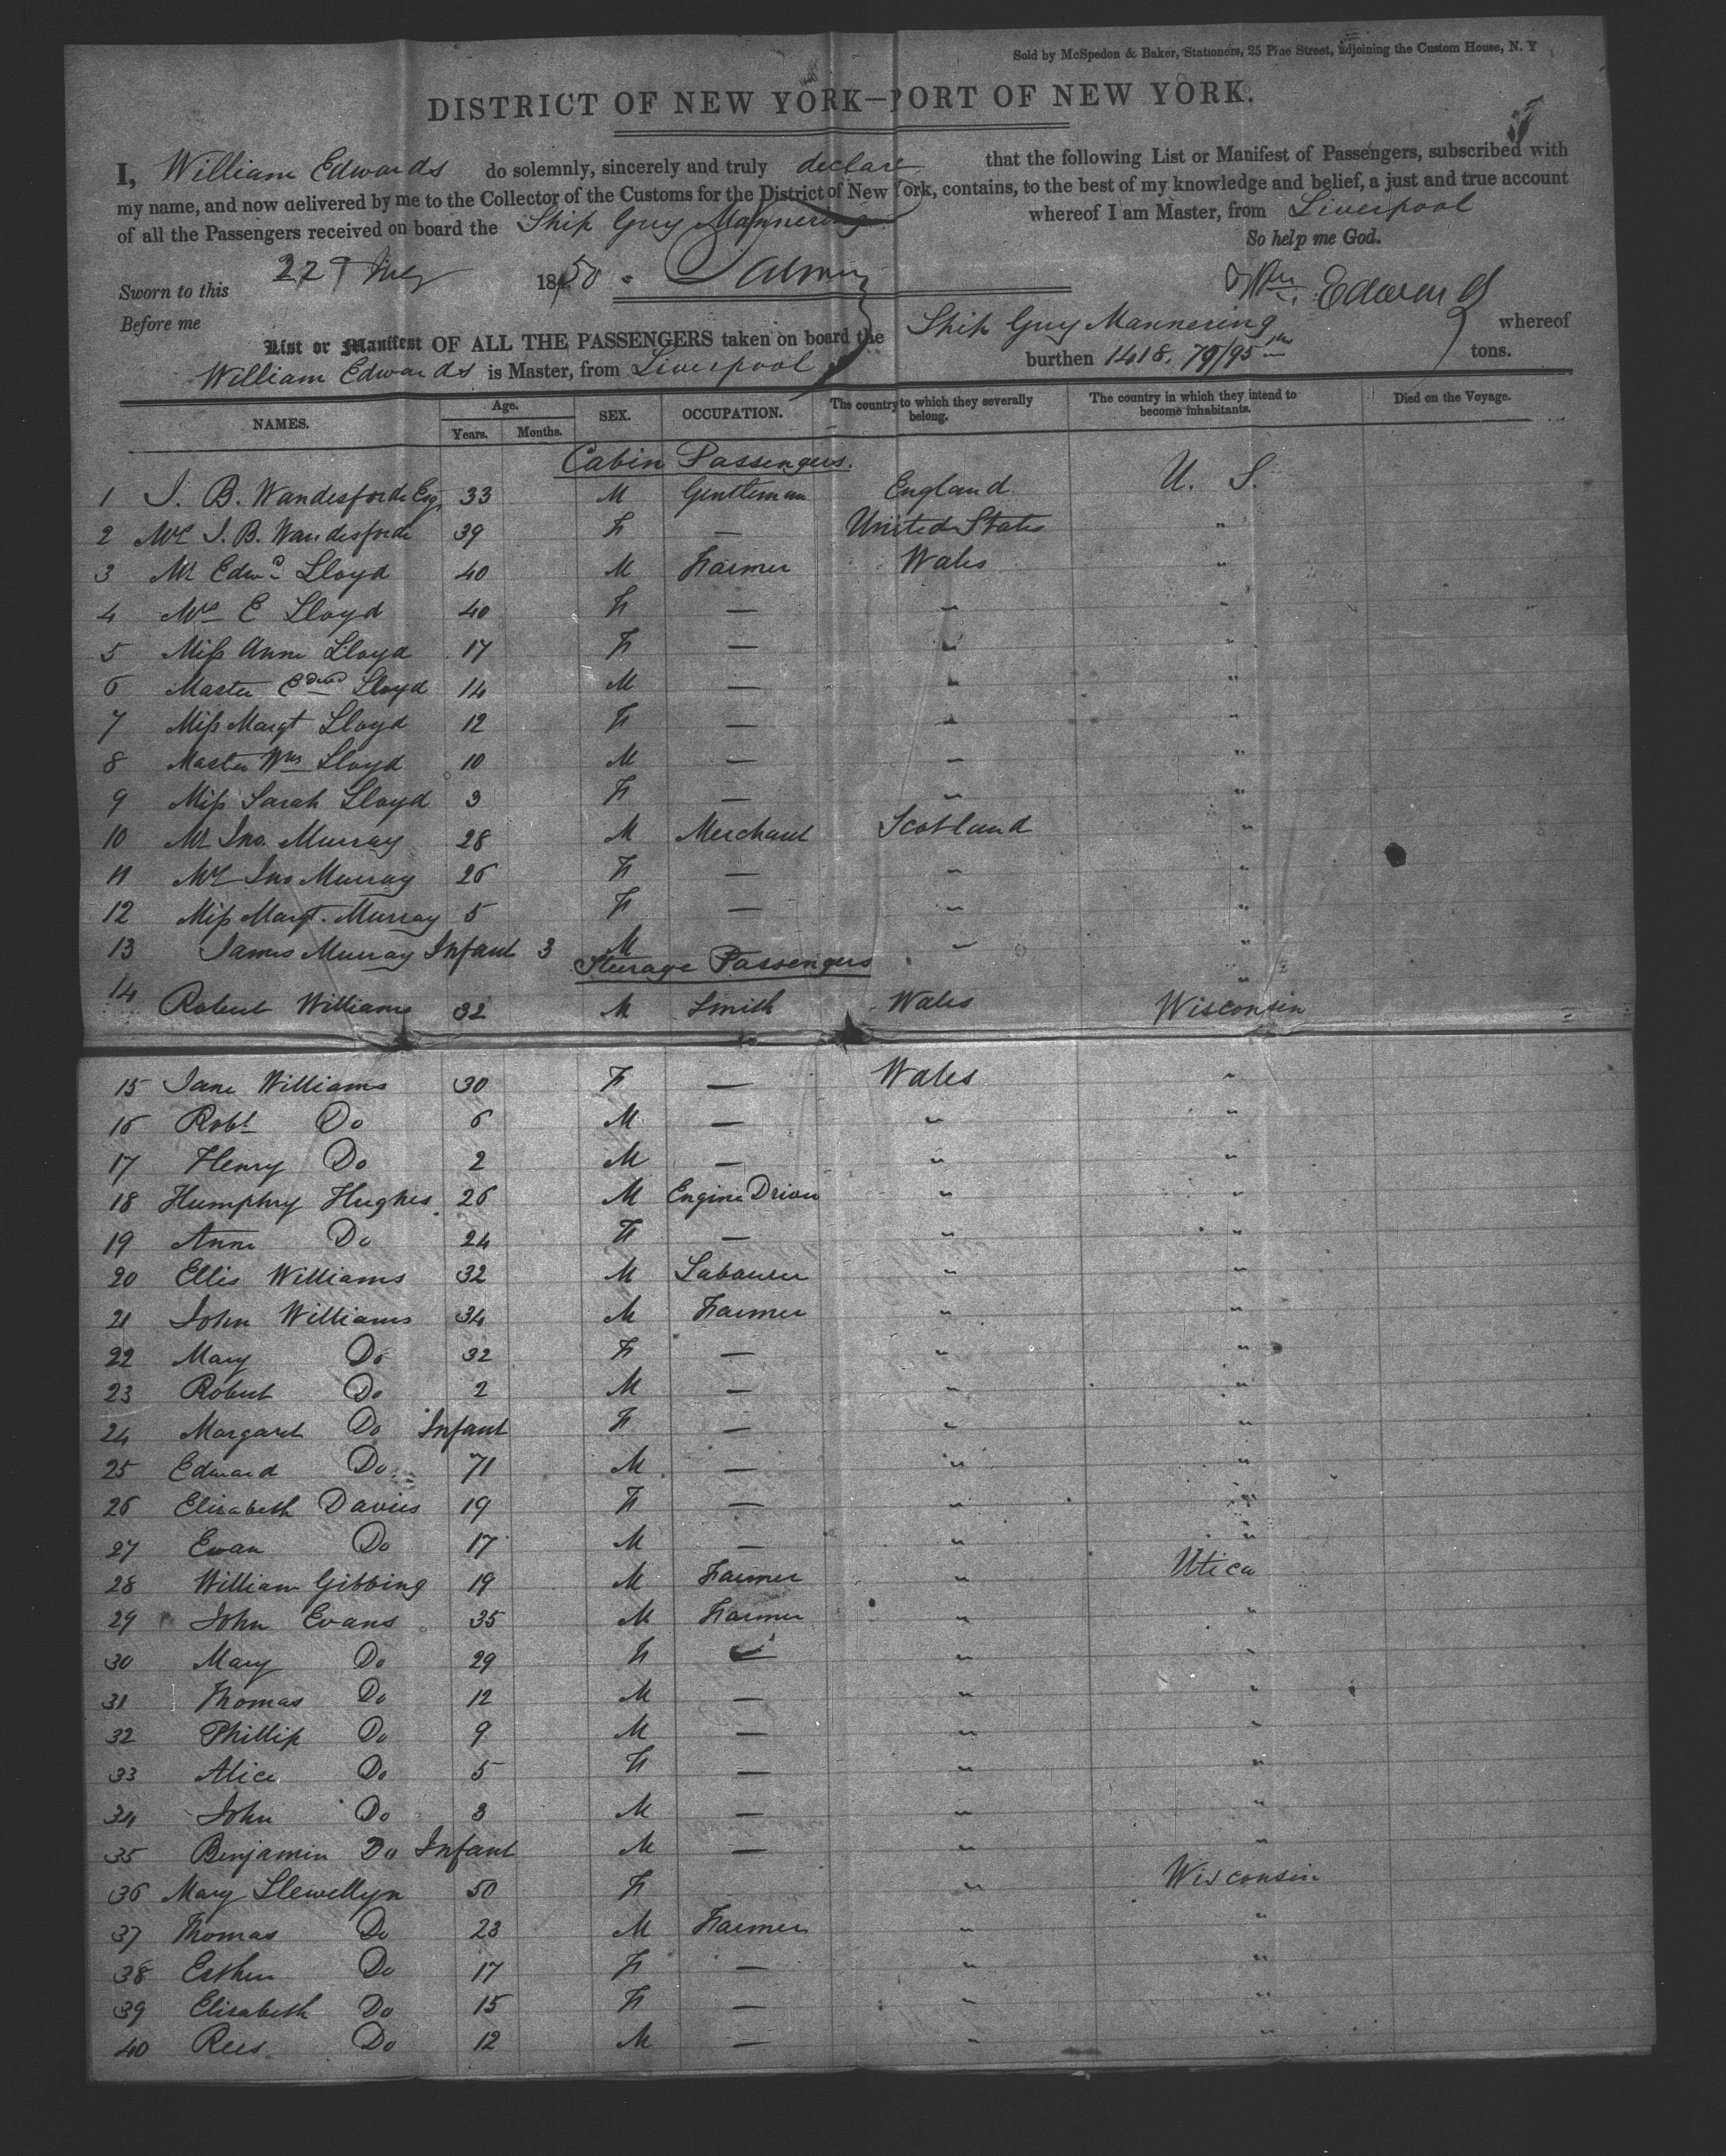 Sold by McSpedon & Baker, Stationers, 25 Pine Street, adjoining the Custom House, N. Y
DISTRICT OF NEW YORK—PORT OF NEW YORK.
I, William Edwards do solemnly, sincerely and truly declare that the following List or Manifest of Passengers, subscribed with
my name, and now delivered by me to the Collector of the Customs for the District of New York, contains, to the best of my knowledge and belief, a just and true account
of all the Passengers received on board the Ship Guy Mannering whereof I am Master, from Liverpool
So help me God.
Sworn to this 22 1850 Wm Edwards
Before me
List or Manifest OF ALL THE PASSENGERS taken on board the Ship Guy Mannering whereof
William Edwards is Master, from Liverpool burthen 1418. 79/95 tons.
NAMES. Age. Years. Months. SEX. OCCUPATION. The country to which they severally belong. The country in which they intend to become inhabitants. Died on the Voyage.
Cabin Passengers.
1 J. B. Wandesforde Esq 33 M Gentleman England U. S.
2 Mrs J. B. Wandesforde 39 F — United States "
3 Mr Edwd Lloyd 40 M Farmer Wales "
4 Mrs E Lloyd 40 F — " "
5 Miss Anne Lloyd 17 F — " "
6 Master Edwd Lloyd 14 M — " "
7 Miss Margt Lloyd 12 F — " "
8 Master Wm Lloyd 10 M — " "
9 Miss Sarah Lloyd 3 F — " "
10 Mr Jno. Murray 28 M Merchant Scotland "
11 Mrs Jno Murray 26 F — " "
12 Miss Margt. Murray 5 F — " "
13 James Murray Infant 3 M " "
Steerage Passengers "
14 Robert Williams 32 M Smith Wales Wisconsin
15 Jane Williams 30 F — Wales "
16 Robt Do 6 M — " "
17 Henry Do 2 M — " "
18 Humphry Hughes 26 M Engine Driver " "
19 Anne Do 24 F — " "
20 Ellis Williams 32 M Labourer " "
21 John Williams 34 M Farmer " "
22 Mary Do 32 F — " "
23 Robert Do 2 M — " "
24 Margaret Do Infant F — " "
25 Edward Do 71 M — " "
26 Elizabeth Davies 19 F — " "
27 Ewan Do 17 M — " "
28 William Gibbing 19 M Farmer " Utica
29 John Evans 35 M Farmer " "
30 Mary Do 29 F — " "
31 Thomas Do 12 M — " "
32 Phillip Do 9 M — " "
33 Alice Do 5 F — " "
34 John Do 3 M — " "
35 Benjamin Do Infant M — " "
36 Mary Llewellyn 50 F " Wisconsin
37 Thomas Do 23 M Farmer " "
38 Esther Do 17 F — " "
39 Elizabeth Do 15 F — " "
40 Rees Do 12 M — " "